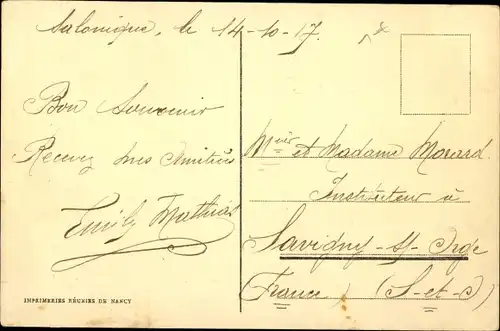 Salonique, le 14-10-17.
Bon Souvenir
Recevez mes Amitiés
Emily Mathias
IMPRIMERIES RÉUNIES DE NANCY
et Madame Morard
Instituteur à
Savigny-s/-Orge
(France) (S-et-O)